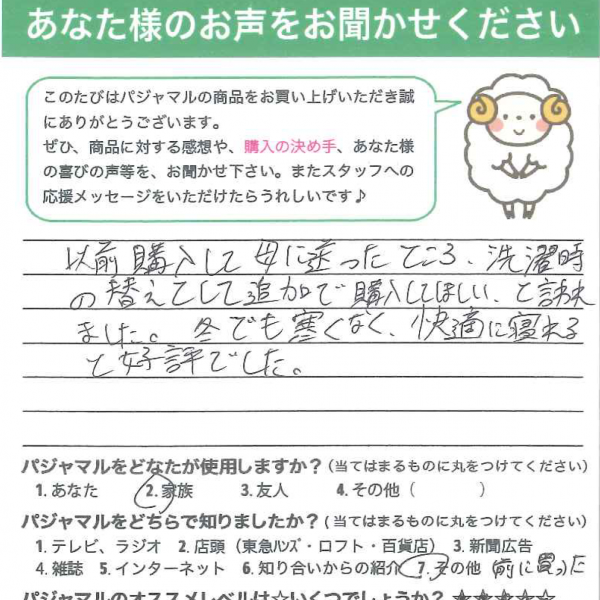 あなた様のお声をお聞かせください
このたびはパジャマルの商品をお買い上げいただき誠
にありがとうございます。
ぜひ、商品に対する感想や、購入の決め手、あなた様
の喜びの声等を、お聞かせ下さい。またスタッフへの
応援メッセージをいただけたらうれしいです♪
以前購入して母に送ったところ、洗濯時
の替えとして追加で購入してほしい、と言われ
ました。冬でも寒くなく、快適に寝れる
と好評でした。
パジャマルをどなたが使用しますか？（当てはまるものに丸をつけてください）
1.あなた 2.家族 3.友人 4.その他（ ）
パジャマルをどちらで知りましたか？（当てはまるものに丸をつけてください）
1.テレビ、ラジオ 2.店頭（東急ハンズ・ロフト・百貨店） 3.新聞広告
4.雑誌 5.インターネット 6.知り合いからの紹介 7.その他 前に買った
パジャマルのオススメレベルは☆いくつでしょうか？ ★★★★☆